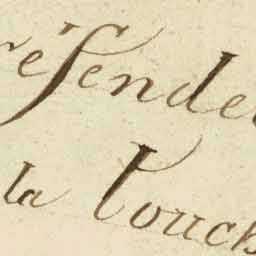 reſende
la touch